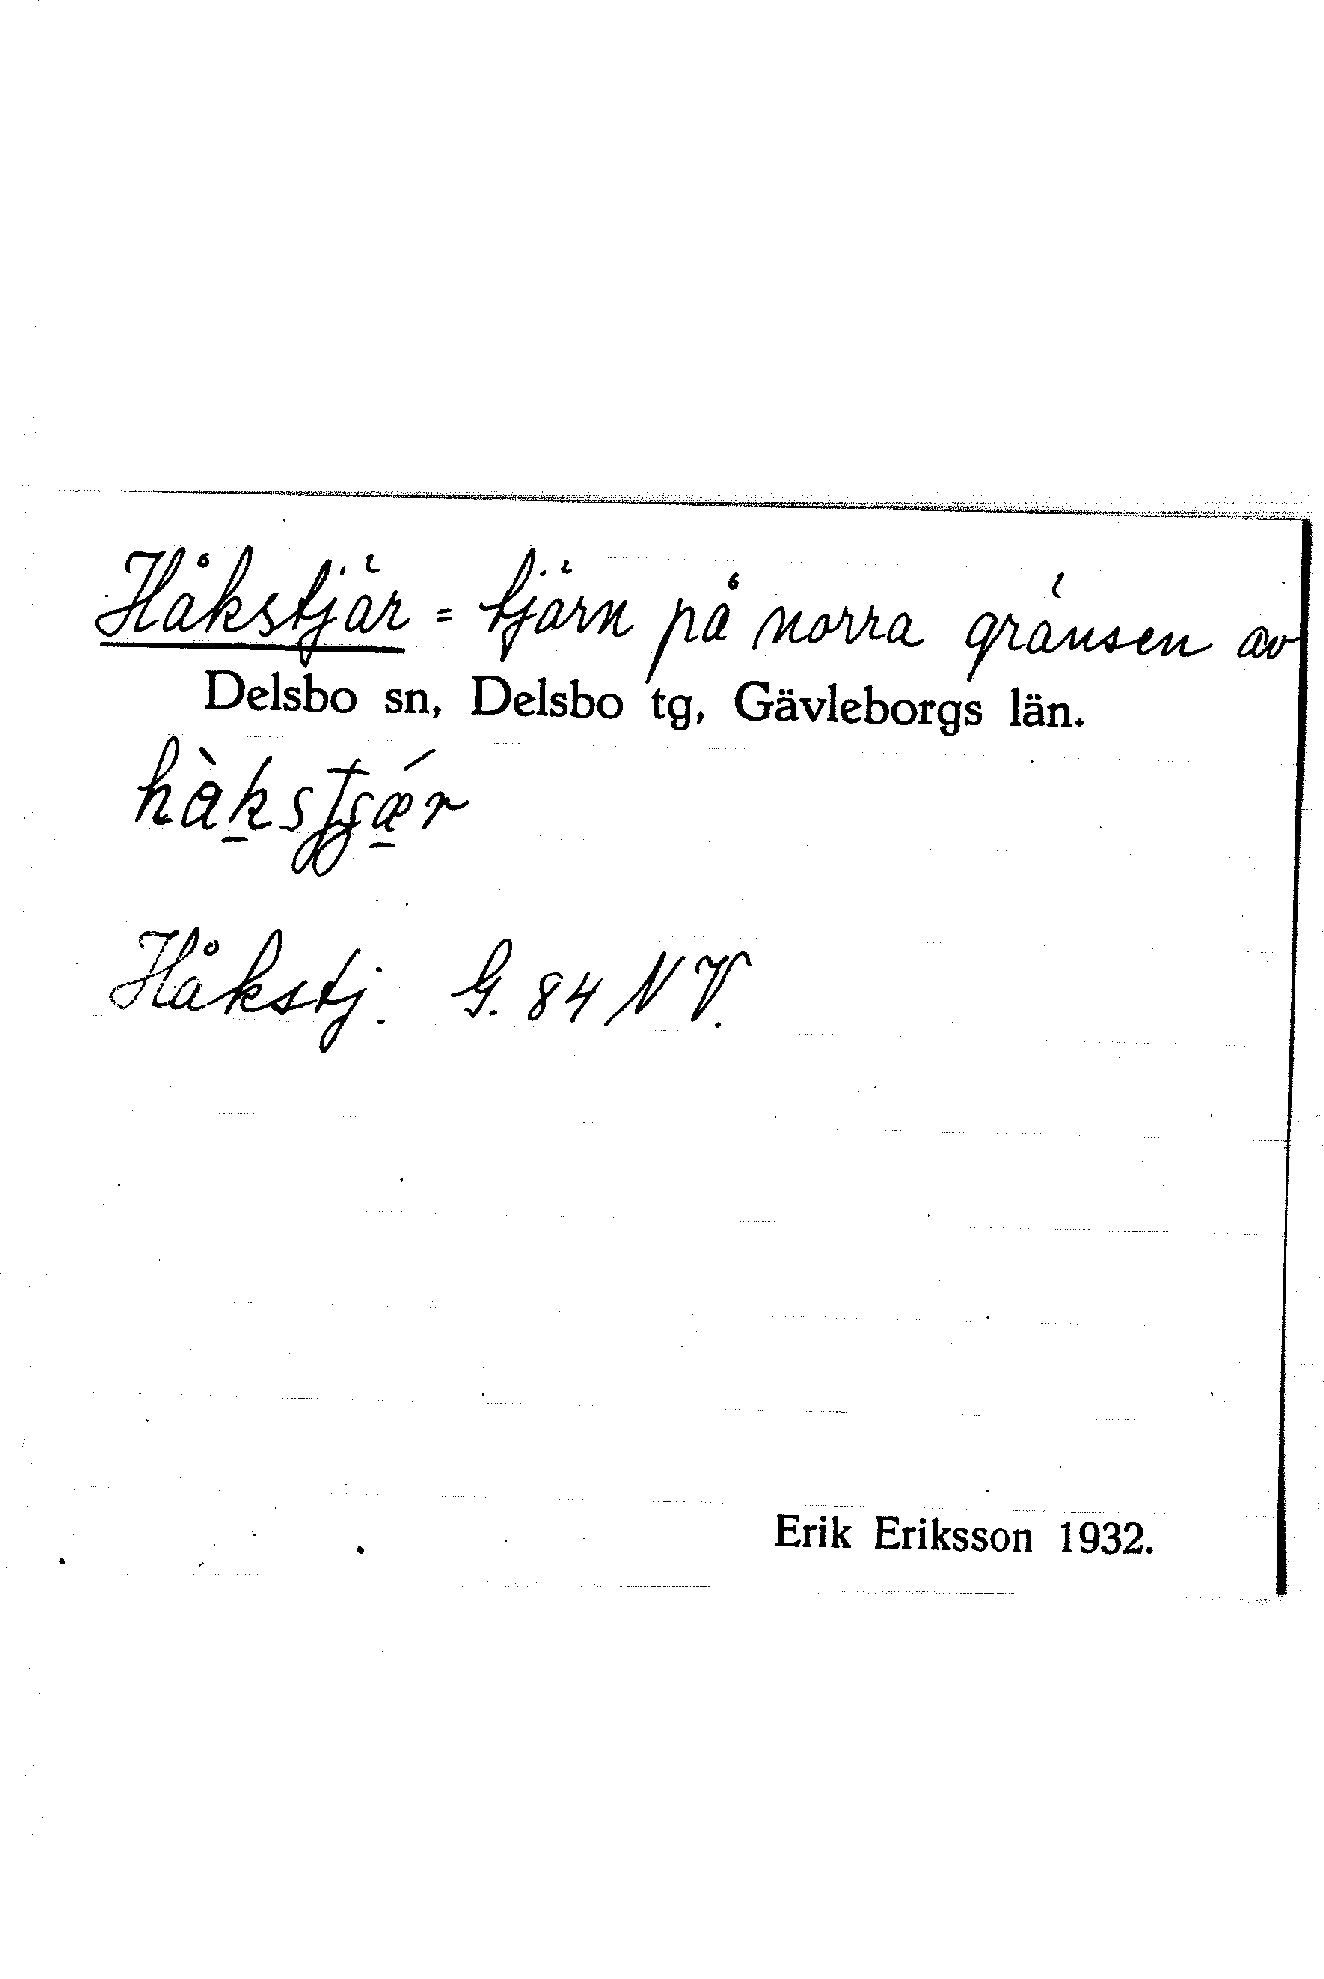 Håkstjär = tjärn på norra gränsen av
Delsbo sn, Delsbo tg, Gävleborgs län.
Håkstj. G. 84 NV.
Erik Eriksson 1932.